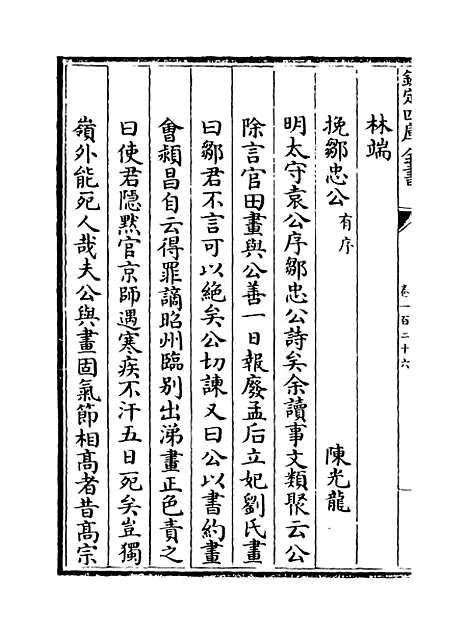 欽定四庫全書
卷一百二十六
林端
挽鄒忠公有序 陳光龍
明太守袁公序鄒忠公詩矣余讀事文類聚云公
除言官田畫與公善一日報廢孟后立妃劉氏畫
曰鄒君不言可以絶矣公切諫又曰公以書約畫
會潁昌自云得罪謫昭州臨别出涕畫正色責之
曰使君隱默官京師遇寒疾不汗五日死矣豈獨
嶺外能死人哉夫公與畫固氣節相髙者昔髙宗